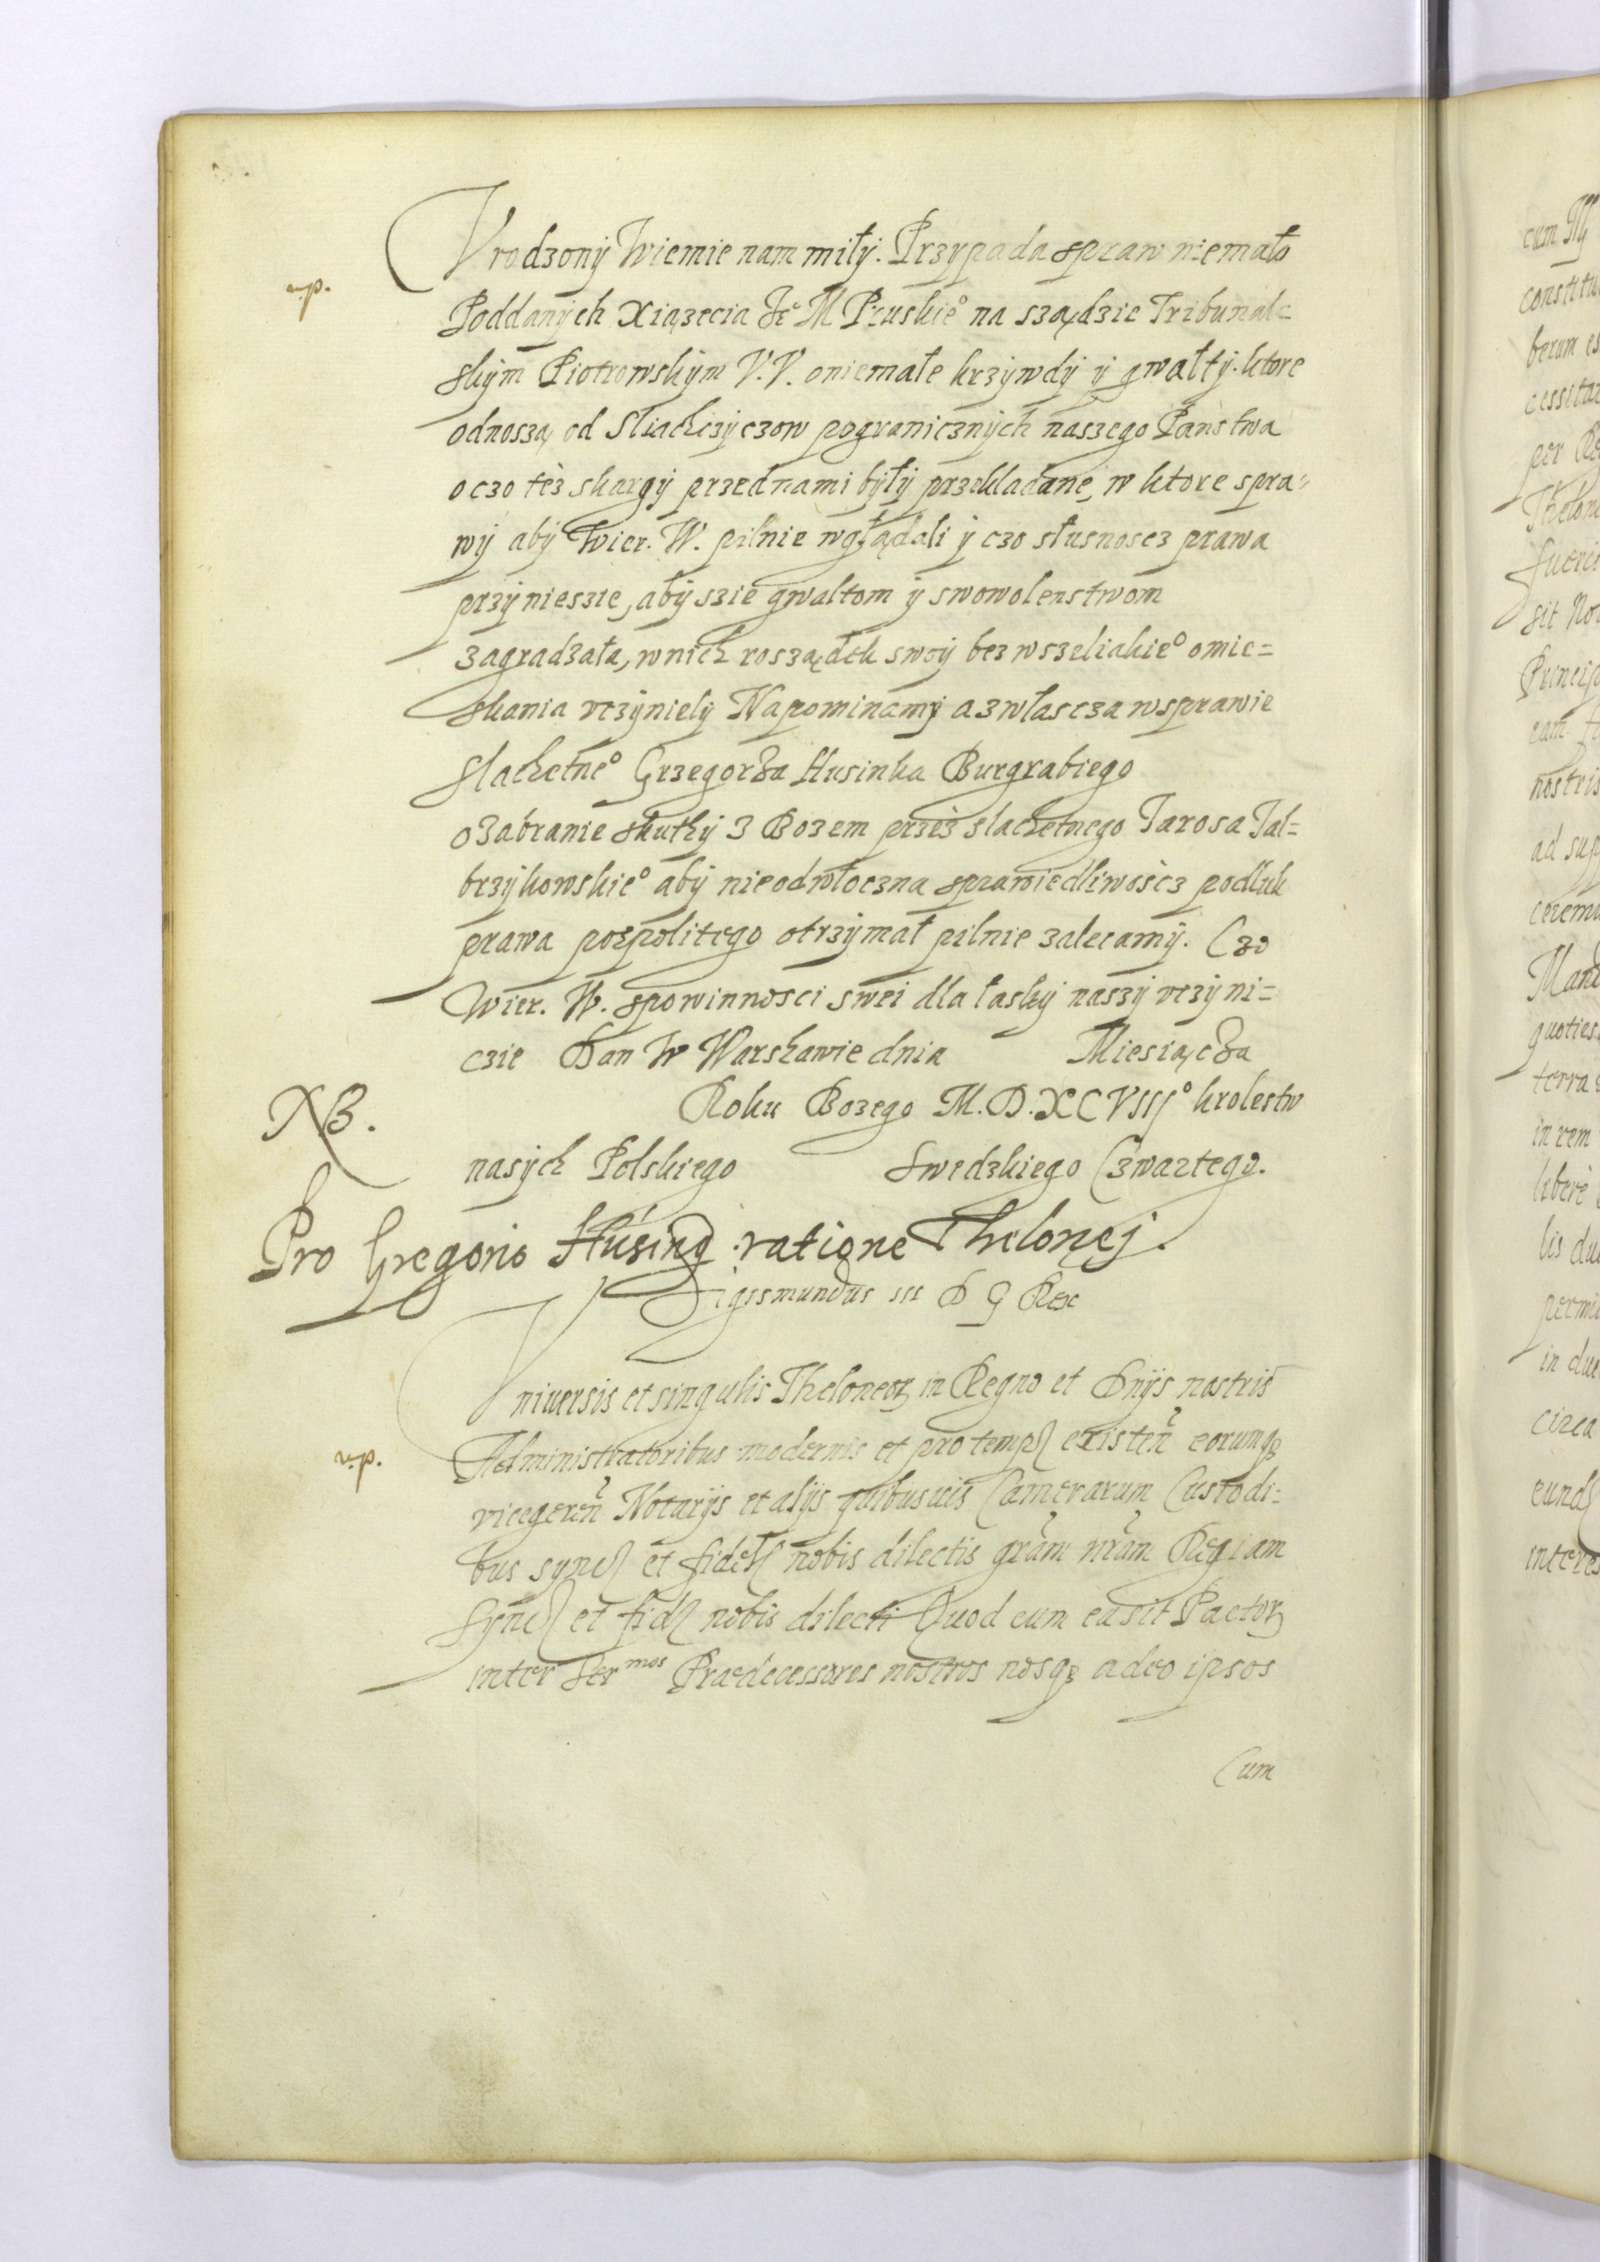 Vrodzony Wiernie nam miły. Przypada spraw niemało
n.p.
Poddanych Xiązecia Je° M Pruskie° na sządzie Tribunal=
skym Piotrowskym V.V. oniemałe krzywdy y gwałty. ktore
odnoszą od Sliachczyczow pogranicznych naszego Panstwa
oczo tez skargy przednami były przekladane, w ktore spra=
wy aby Wier. W. pilnie wglądali y czo słusnoscz prawa
przyniesie, aby szie gwaltom y swowolenstwom
zagradzała, wnich rosządek swoy bez wszeliakie° omie=
skania vczyniely Napominamy azwłascza wsprawie
slachetne° Grzegorza Husinka Burgrabiego
ozabranie skuthy z Bozem przez slachetnego Jarosa Jal=
brzykowskie° aby nieodwłoczna sprawiedliwoscz podluk
prawa pospolitego otrzymał pilnie zalecamy. Czo
Wier. W. spowinnosci swei dla łasky naszy vczyni=
czie Dan W Warszawie dnia Miesiącza
Roku Bozego M.D.XCVIII° krolestw
NB.
nasych Polskiego Swedzkiego Czwartego.
Pro Gregorio Hüsing ratione Thelonej.
Sigismundus III D G Rex
Vniuersis et singulis Theloneoꝝ in Regno et Dnijs nostris
n.p.
Administratoribus modernis et pro temp existen̄ eorumqꝫ
vicegeren̄ Notarijs et alijs quibusuis Camerarum Custodi=
bus sync et fidel nobis dilectis gram nram Regiam
Sync et fid nobis dilecti Quod cum ea sit Pactoꝝ
inter Ser^mos Praedecessores nostros nosqꝫ adeo ipsos
Cum